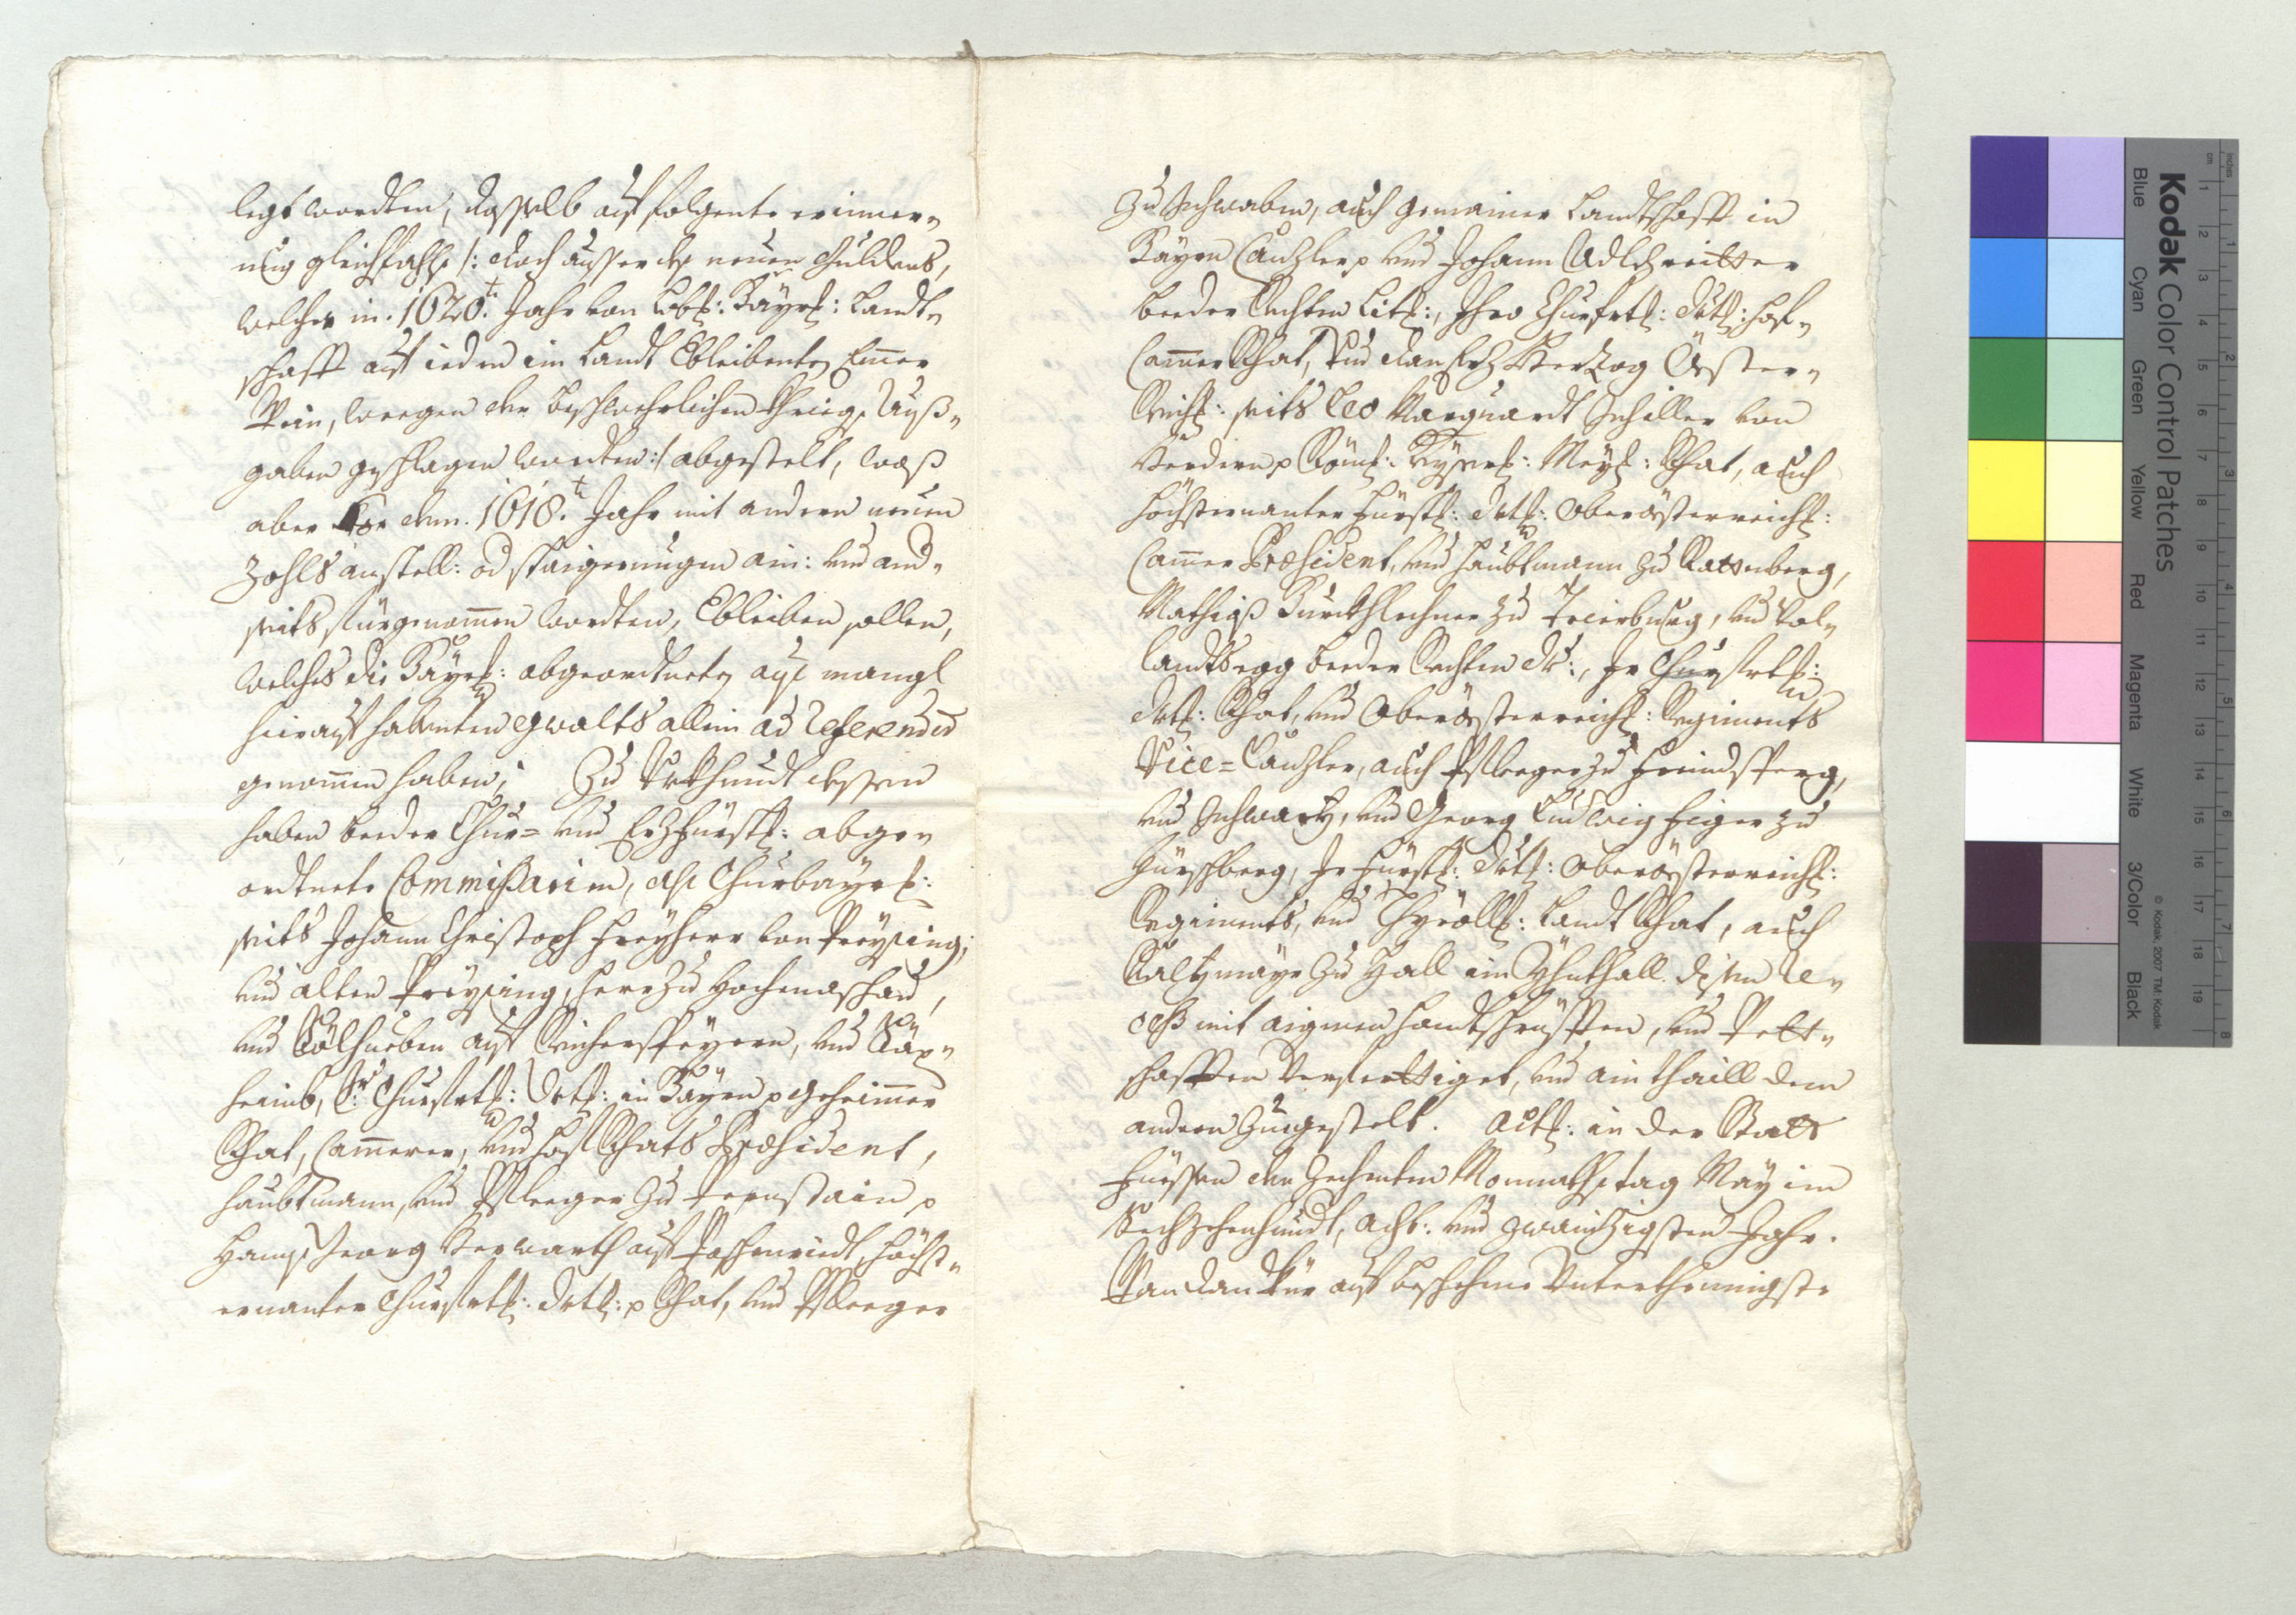 legt wordten, dasselb auf folgente erinner„
ung gleichfahls /: doch ausser des neuen Guldens,
welcher in. 1620.t Jahr von Löbl: Bayrl: Landt„
schafft auf ieden im Landt bleibenten Emer
Wein, weegen der beschwehrlichen Kriegs Auß„
gaben geschlagen wordten :/ abgestelt, waß
aber vor dem. 1618.t Jahr mit andern neuen
Zohls anstell: od staigerungen ain: und and„
seits fürgenomen wordten, bleiben sollen,
welches die Bayrl: abgeordtnete auß mangl
hierauf habenten Gwalts allein ad referendũ
genomen haben; Zu Urkhundt dessen
haben beeder Chur= und Erzfürstl: abge„
ordtnete Commißarien, als Churbayrl:
seits Johann Christoph Freyherr von Preysing,
und alten Preysing, Herr zu Hochenaschau,
und auf Reicherspeyern, und
heimb, Churfrtl: Drtl: in Bayrn p geheimer
Rhat, Camerer, und Hof Rhats Præsident,
Haubtmann, und Pfleeger zu p
Hanß Georg Herwarth auf höchst„
ernanter Churfrtl: Drtl: p Rhat, und Pfleeger
zu Schwaben, auch gemainer Landtschafft in
Bayrn Canzler p und Johann Adlzreitter
beeder Rechten Litl:, Ihro Churfrtl: Drtl: Hof„
Camer Rhat, Und dan Erz Herzog Össter„
Reichl: seits Leo Marquardt Schiller von
Herdern p Röml: Kayserl: Mayl: Rhat, auch
höchsternanter Fürstl: Drtl: Oberösterreichl:
Camer Præsident, und Haubtmann zu Rattenberg,
Mathiaß Burckhlechner zu Thierburg, und Vol„
landtsegg beeder Rechten Dr:, Ir Churfrtl:
Drtl: Rhat, und Oberösterreichl: Regiments
Vice=Canzler, auch Pfleeger zu Freundsperg,
und Schwatz, und Georg Ludwig Figer zu
Hürschberg, Ir Fürstl: Drtl: Oberösterreichl:
Regiments, und Thyrölll: Landt Rhat, auch
Salzmayr zu Hall im Yhnthall. disen Re„
ceß mit aigenen Handtschrüfften, und Pett„
schafften verferttiget, und ain thaill dem
andern zuegestelt. Actl: in der Statt
Füessen den Zechenten Monnathstag May im
Sechzehenhundt, acht: und zwainzigsten Jahr.
Wan dan Wür auf beschehene Unterthennigste